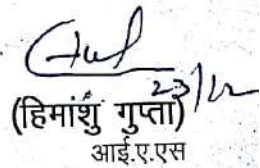 23/12
(हिमांशु गुप्ता)
आई.ए.एस